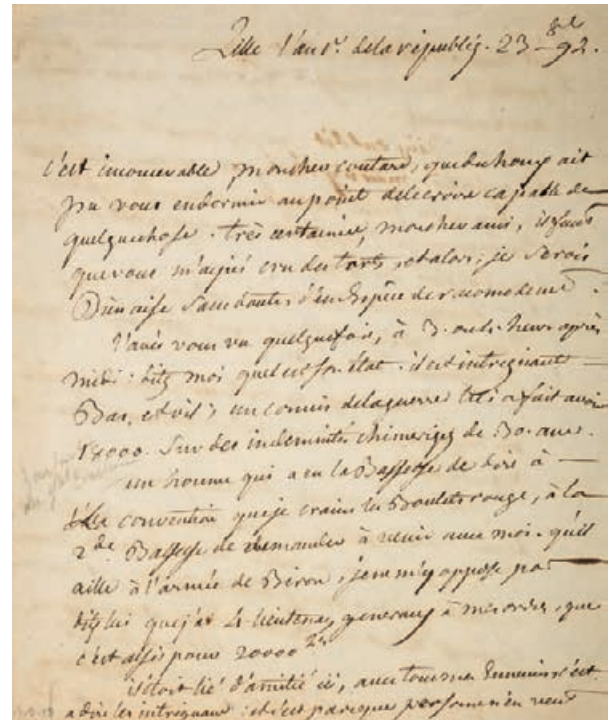 Lille l'an 1er de la républiq. 23 8bre 92.
c'est inconcevable, mon cher coutard, que duhoux ait
pu vous endormir au point de le croire capable de
quelquechose. très certainement, mon cher ami, il faut
que vous m'ayiés cru des torts, et alors, je serois
Bien aise sans doute d'en
l'avés vous vu quelquefois, à 3. ou 4. heures après
midi: dites moi quel est son état. il est intriguant
Bas, et vil; un commis de la guerre lui a fait avoir
18000. sur des indemnités chimeriqes de 30. ans.
un homme qui a eu la Bassesse de dire à
la convention que je crains les Boulets rouges, à la
2de Bassesse de demander à venir avec moi. qu'il
aille à l'armée de Biron, je ne m'y oppose pas
dites lui que j'ai 4 lieutenas generaux à mes ordres, que
c'est assés pour 20000
il s'étoit lié d'amitié ici, avec tous mes Ennemis c'est
a dire les intriguans: et c'est parce que personne n'en veut